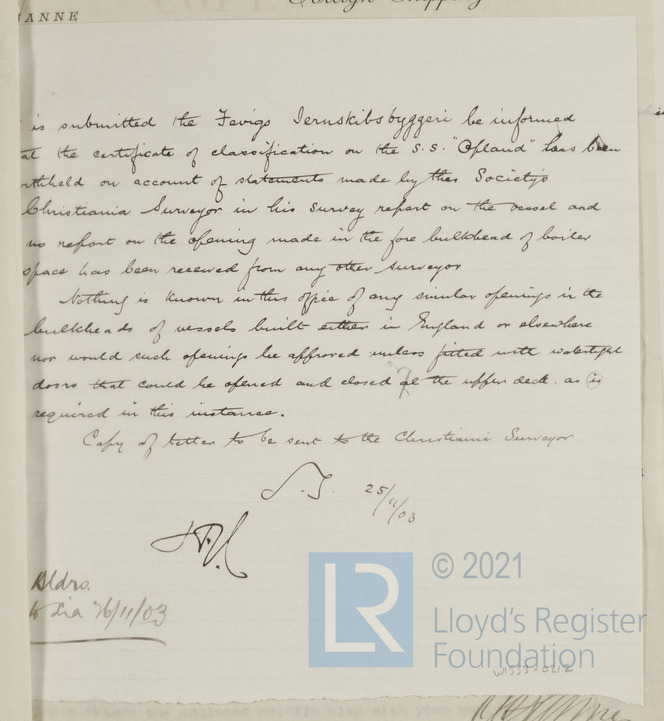 ANNE
is submitted the Fevigs Jernskibsbyggeri be informed
at the certificate of classification on the S.S. "Opland" has been
withheld on account of statements made by the Society's
Christiania Surveyor in his survey report on the vessel and
no report on the opening made in the fore bulkhead of boiler
space has been received from any other surveyor
Nothing is known in this office of any similar openings in the
bulkheads of vessels built either in England or elsewhere
nor would such openings be approved unless fitted with watertight
doors that could be opened and closed at the upper deck. as is
required in this instance.
Copy of letter to be sent to the Christiania Surveyor
25/11/03
26/11/03
LR
© 2021
Lloyd's Register
Foundation